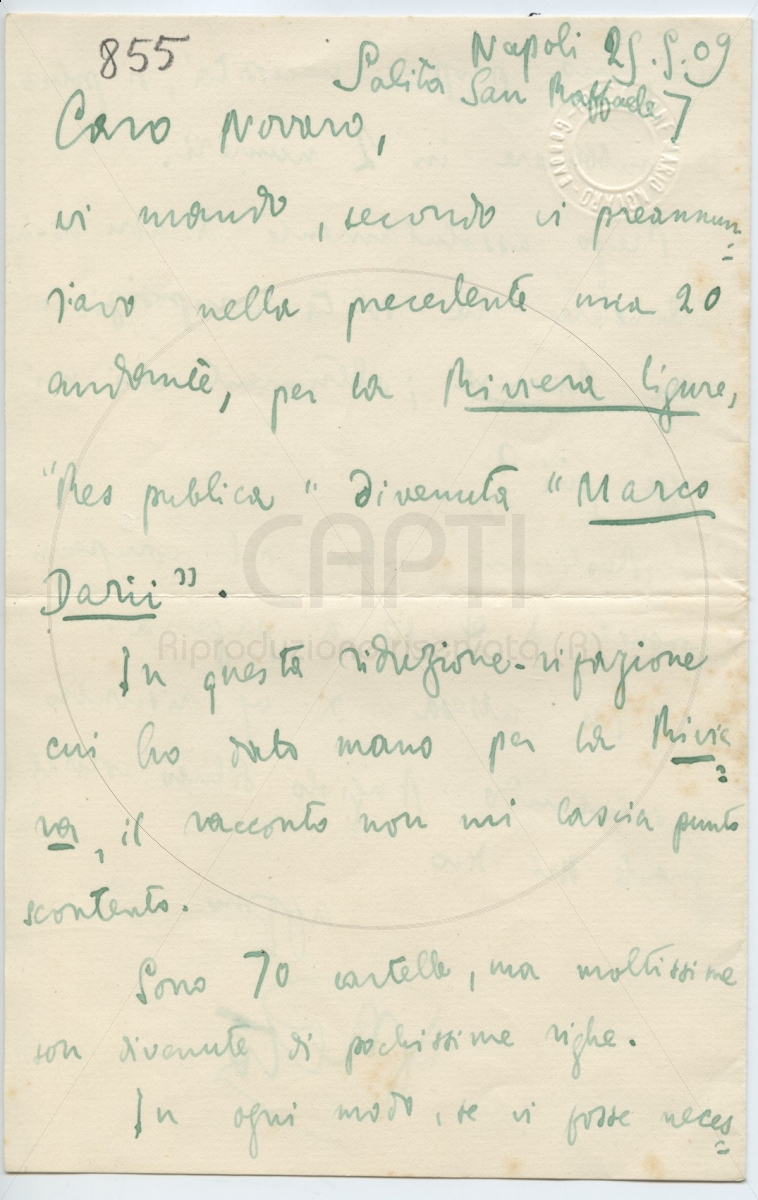 855
Napoli 25.5.09
Salita San Raffaele 7
Caro Novaro,
vi mando, secondo vi preannun=
ziavo nella precedente mia 20
andante, per la Riviera ligure,
"Res publica" divenuta "Marco
Darii".
In questa riduzione-rifazione
cui ho dato mano per la Rivie
ra, il racconto non mi lascia punto
scontento.
Sono 70 cartelle, ma moltissime
son divenute di pochissime righe.
In ogni modo, se vi fosse neces=
CAPTI
Riproduzione riservata (R)